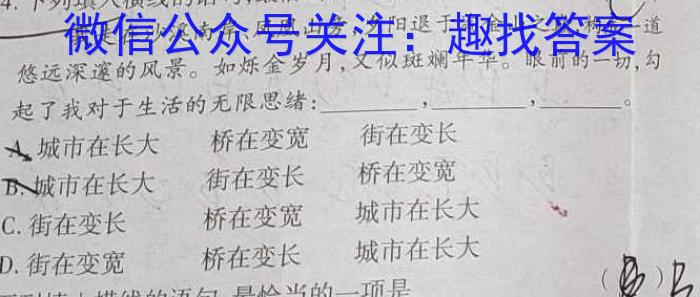 4. 下列填入横线的语句,
微信公众号关注：趣找答案
悠远深邃的风景。如烁金岁月,又似斑斓年华。眼前的一切,勾
起了我对于生活的无限思绪:________,________,________。
A. 城市在长大 桥在变宽 街在变长
B. 城市在长大 街在变长 桥在变宽
C. 街在变长 桥在变宽 城市在长大
D. 街在变宽 桥在变长 城市在长大
( B )
下列填入横线的语句,最恰当的一项是